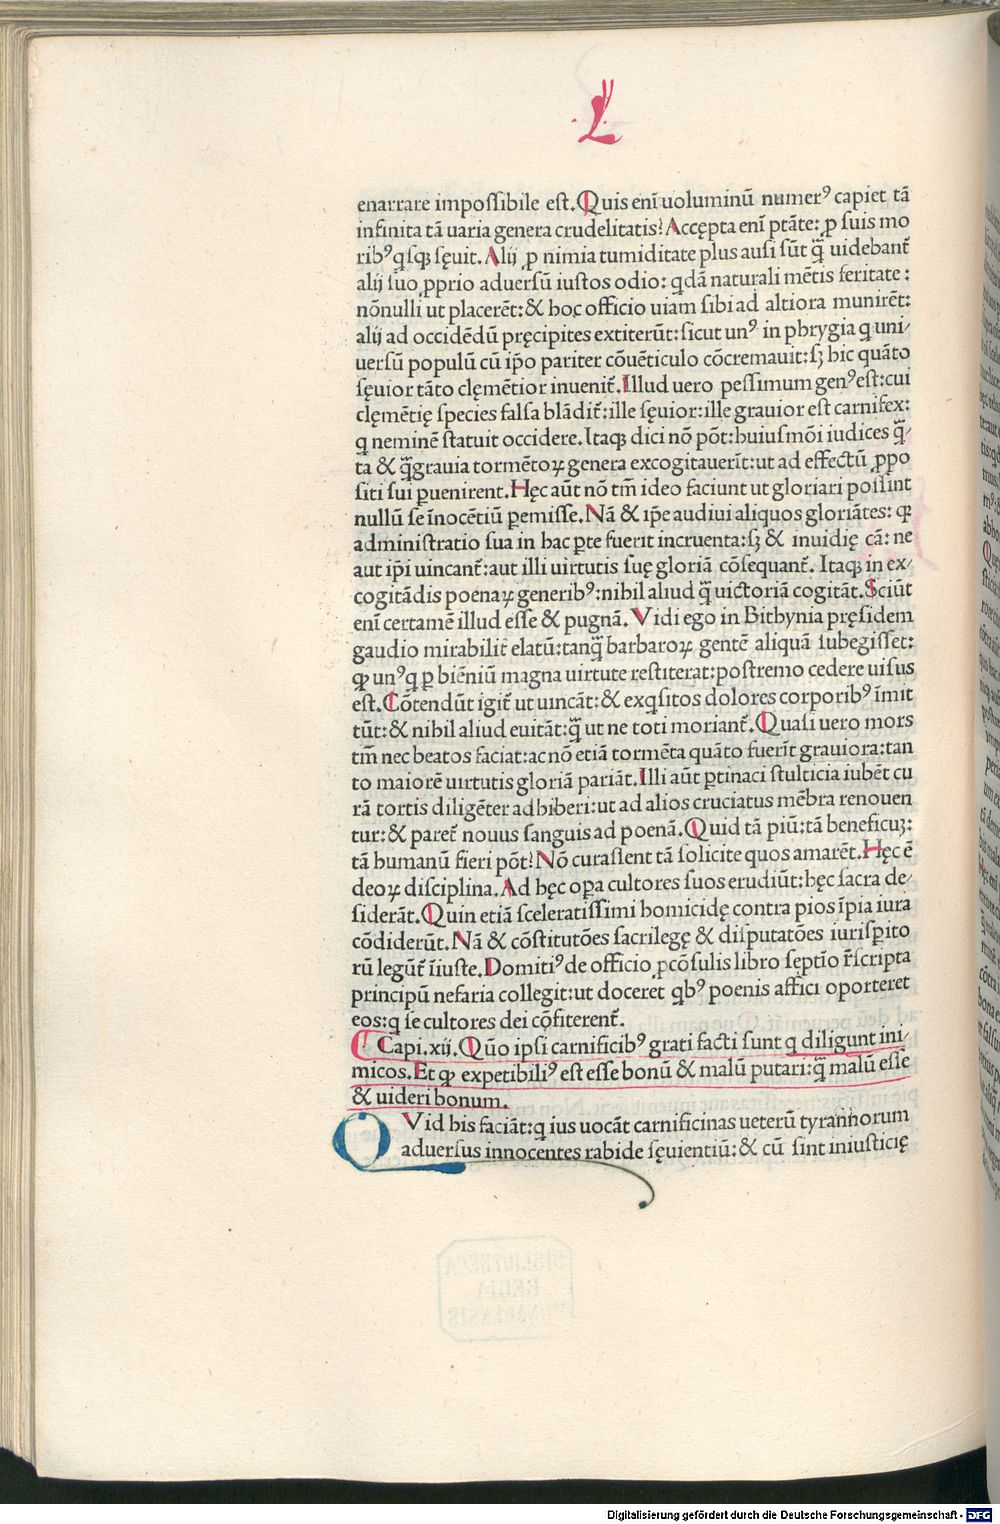 L
enarrare impoſſibile eſt. Quis eni̅ uoluminū numerꝰ capiet tā
infinita tā uaria genera crudelitatis? Accępta eni̅ ptāte: ꝓ ſuis mo
ribꝰ qſqꝫ ſęuit. Alij ꝓ nimia tumiditate plus auſi ſūt q̄ uidebant̄
alij ſuo ꝓprio aduerſū iuſtos odio: qdā naturali mētis feritate:
nōnulli ut placerēt: & hoc officio uiam ſibi ad altiora munirēt:
alij ad occidēdū pręcipites extiterūt: ſicut unꝰ in phrygia q uni/
uerſū populū cū ip̄o pariter cōuēticulo cōcremauit: ſꝫ hic quāto
ſęuior tāto clęmētior inuenit̄. Illud uero peſſimum genꝰ eſt: cui
clęmētię ſpecies falſa blādit̄: ille ſęuior: ille grauior eſt carnifex:
q neminē ſtatuit occidere. Itaqꝫ dici nō pōt: huiuſmōi iudices q̄/
ta & q̄grauia tormētoꝝ genera excogitauerīt: ut ad effectū ꝓpo
ſiti ſui ꝑuenirent. Hęc aūt nō tm̄ ideo faciunt ut gloriari poſſint
nullū ſe īnocētiū ꝑemiſſe. Nā & ip̄e audiui aliquos gloriātes: ꝙ
adminiſtratio ſua in hac ꝑte fuerit incruenta: ſꝫ & inuidię cā: ne
aut ip̄i uincant̄: aut illi uirtutis ſuę gloriā cōſequant̄. Itaqꝫ in ex/
cogitādis poenaꝝ generibꝰ: nihil aliud q̄ uictoriā cogitāt. Sciūt
eni̅ certamē illud eſſe & pugnā. Vidi ego in Bithynia pręſidem
gaudio mirabilit̄ elatū: tanq̄ barbaroꝝ gentē aliquā ſubegiſſet:
ꝙ unꝰ q ꝑ biēniū magna uirtute reſtiterat: poſtremo cedere uiſus
eſt. Cōtendūt igit̄ ut uincāt: & exqſitos dolores corporibꝰ īmit
tūt: & nihil aliud euitāt: q̄ ut ne toti moriant̄. Quaſi uero mors
tm̄ nec beatos faciat: ac nō etiā tormēta quāto fuerīt grauiora: tan
to maiorē uirtutis gloriā pariāt. Illi aūt ꝑtinaci ſtulticia iubēt cu
rā tortis diligēter adhiberi: ut ad alios cruciatus mēbra renouen
tur: & paret̄ nouus ſanguis ad poenā. Quid tā piū: tā beneficuꝫ:
tā humanū fieri pōt? Nō curaſſent tā ſolicite quos amarēt. Hęc ē
deoꝝ diſciplina. Ad hęc oꝑa cultores ſuos erudiūt: hęc ſacra de/
ſiderāt. Quin etiā ſceleratiſſimi homicidę contra pios īpia iura
cōdiderūt. Nā & cōſtitutōes ſacrilegę & diſputatōes iuriſꝑito
rū legūt̄ īiuſte. Domitiꝰ de officio ꝓcōſulis libro ſeptīo r̄ſcripta
principū nefaria collegit: ut doceret qbꝰ poenis affici oporteret
eos: q ſe cultores dei cōfiterent̄.
Capi. xij. Qūo ipſi carnificibꝰ grati facti ſunt q diligunt ini/
micos. Et ꝙ expetibiliꝰ eſt eſſe bonū & malū putari: q̄ malū eſſe
& uideri bonum.
QVid his faciāt: q ius uocāt carnificinas ueterū tyrannorum
aduerſus innocentes rabide ſęuientiū: & cū ſint iniuſticię
BIBLIOTHECA
REGIA
MONACENSIS
Digitalisierung gefördert durch die Deutsche Forschungsgemeinschaft - DFG